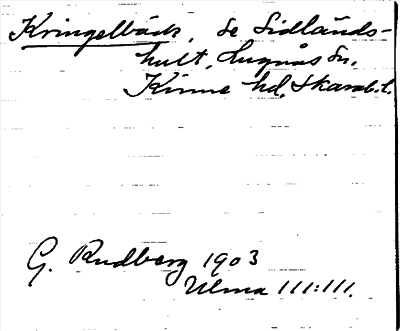 Kringelbäck, se Sidländs-
hult, Lugnås sn,
Kinne hd, Skarab. l.
G. Rudberg 1903
Ulma 111:111.